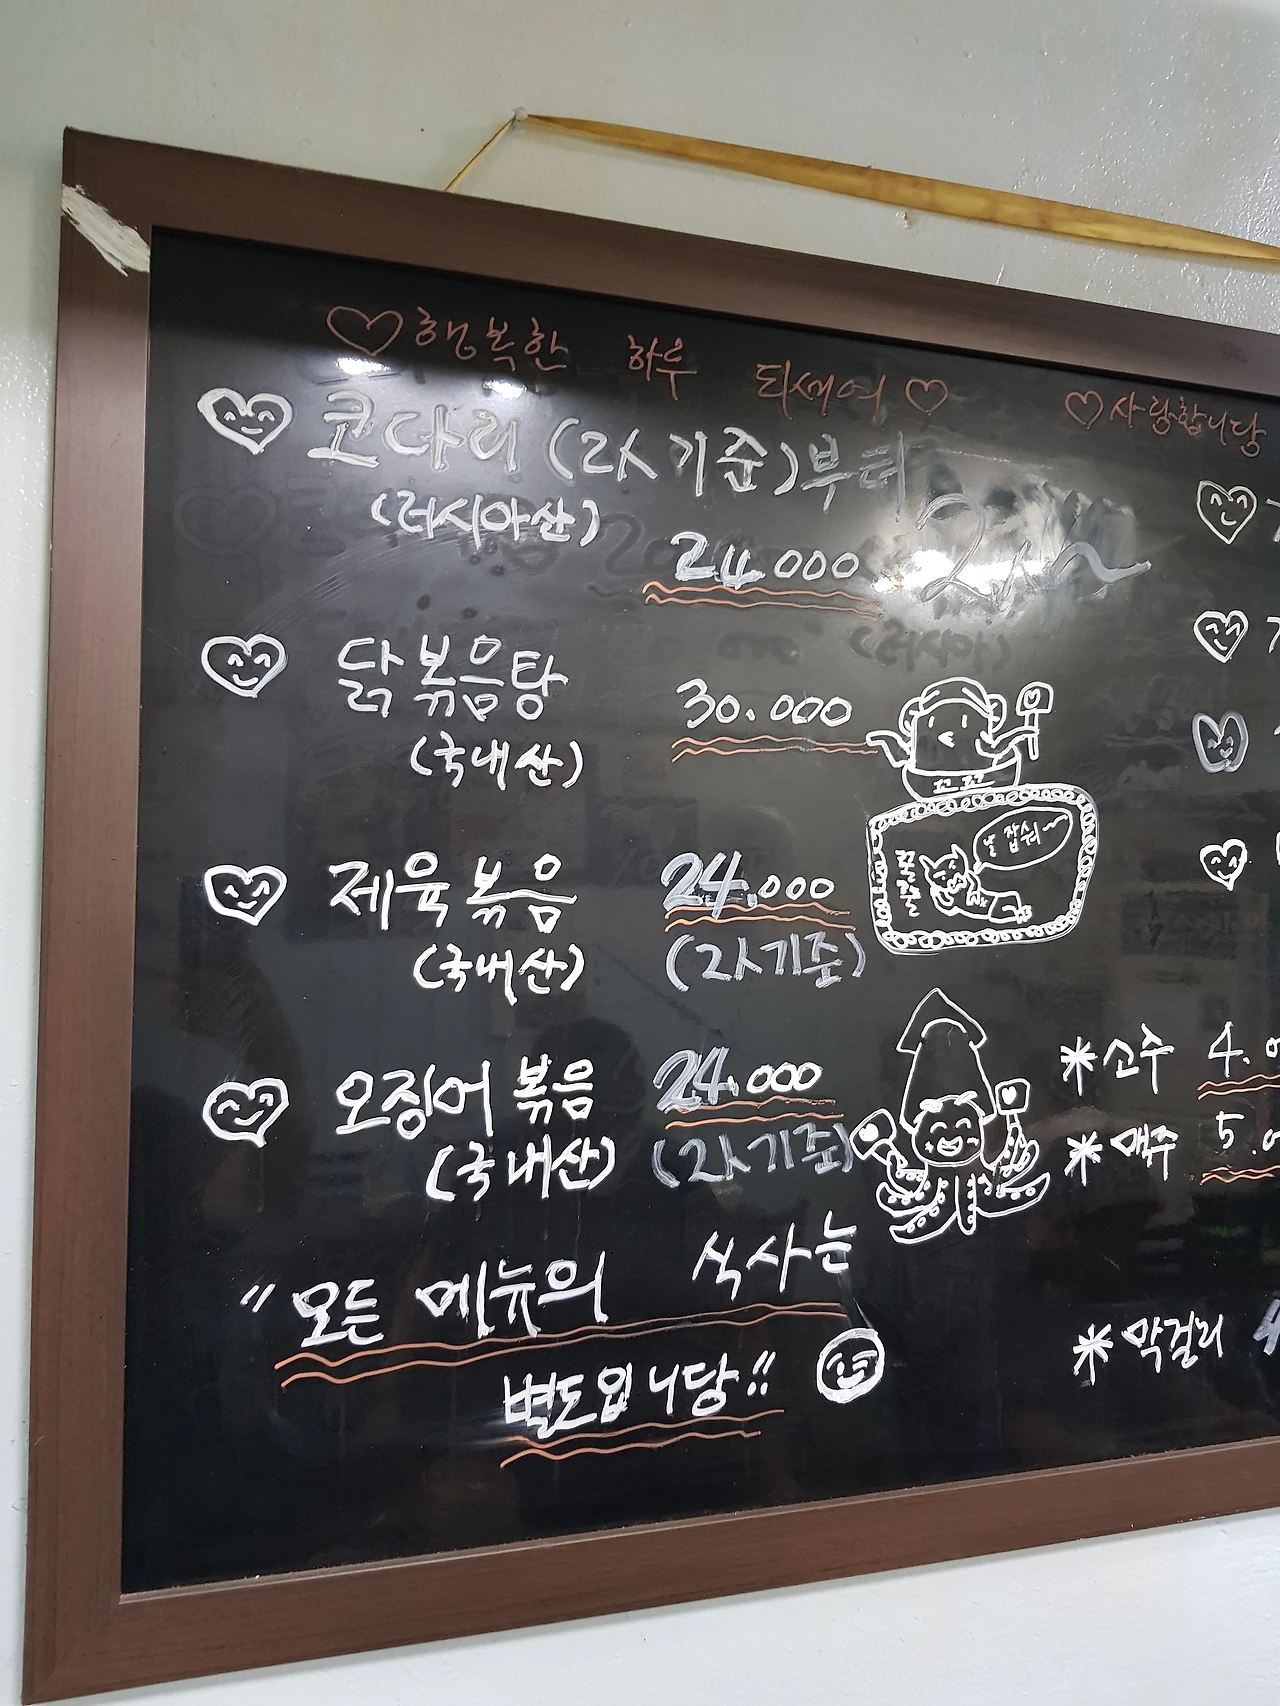 ♡행복한 하루 되세여♡ ♡사랑합니당
코다리 (2人기준)부터
(러시아산)
24.000
닭볶음탕 30.000
(국내산)
제육볶음 24.000
(국내산) (2人기준)
오징어볶음 24.000
(국내산) (2人기준)
"모든 메뉴의 식사는
별도입니당"
꼬꼬
날 잡숴~
*소주 4.0
*맥주 5.0
*막걸리